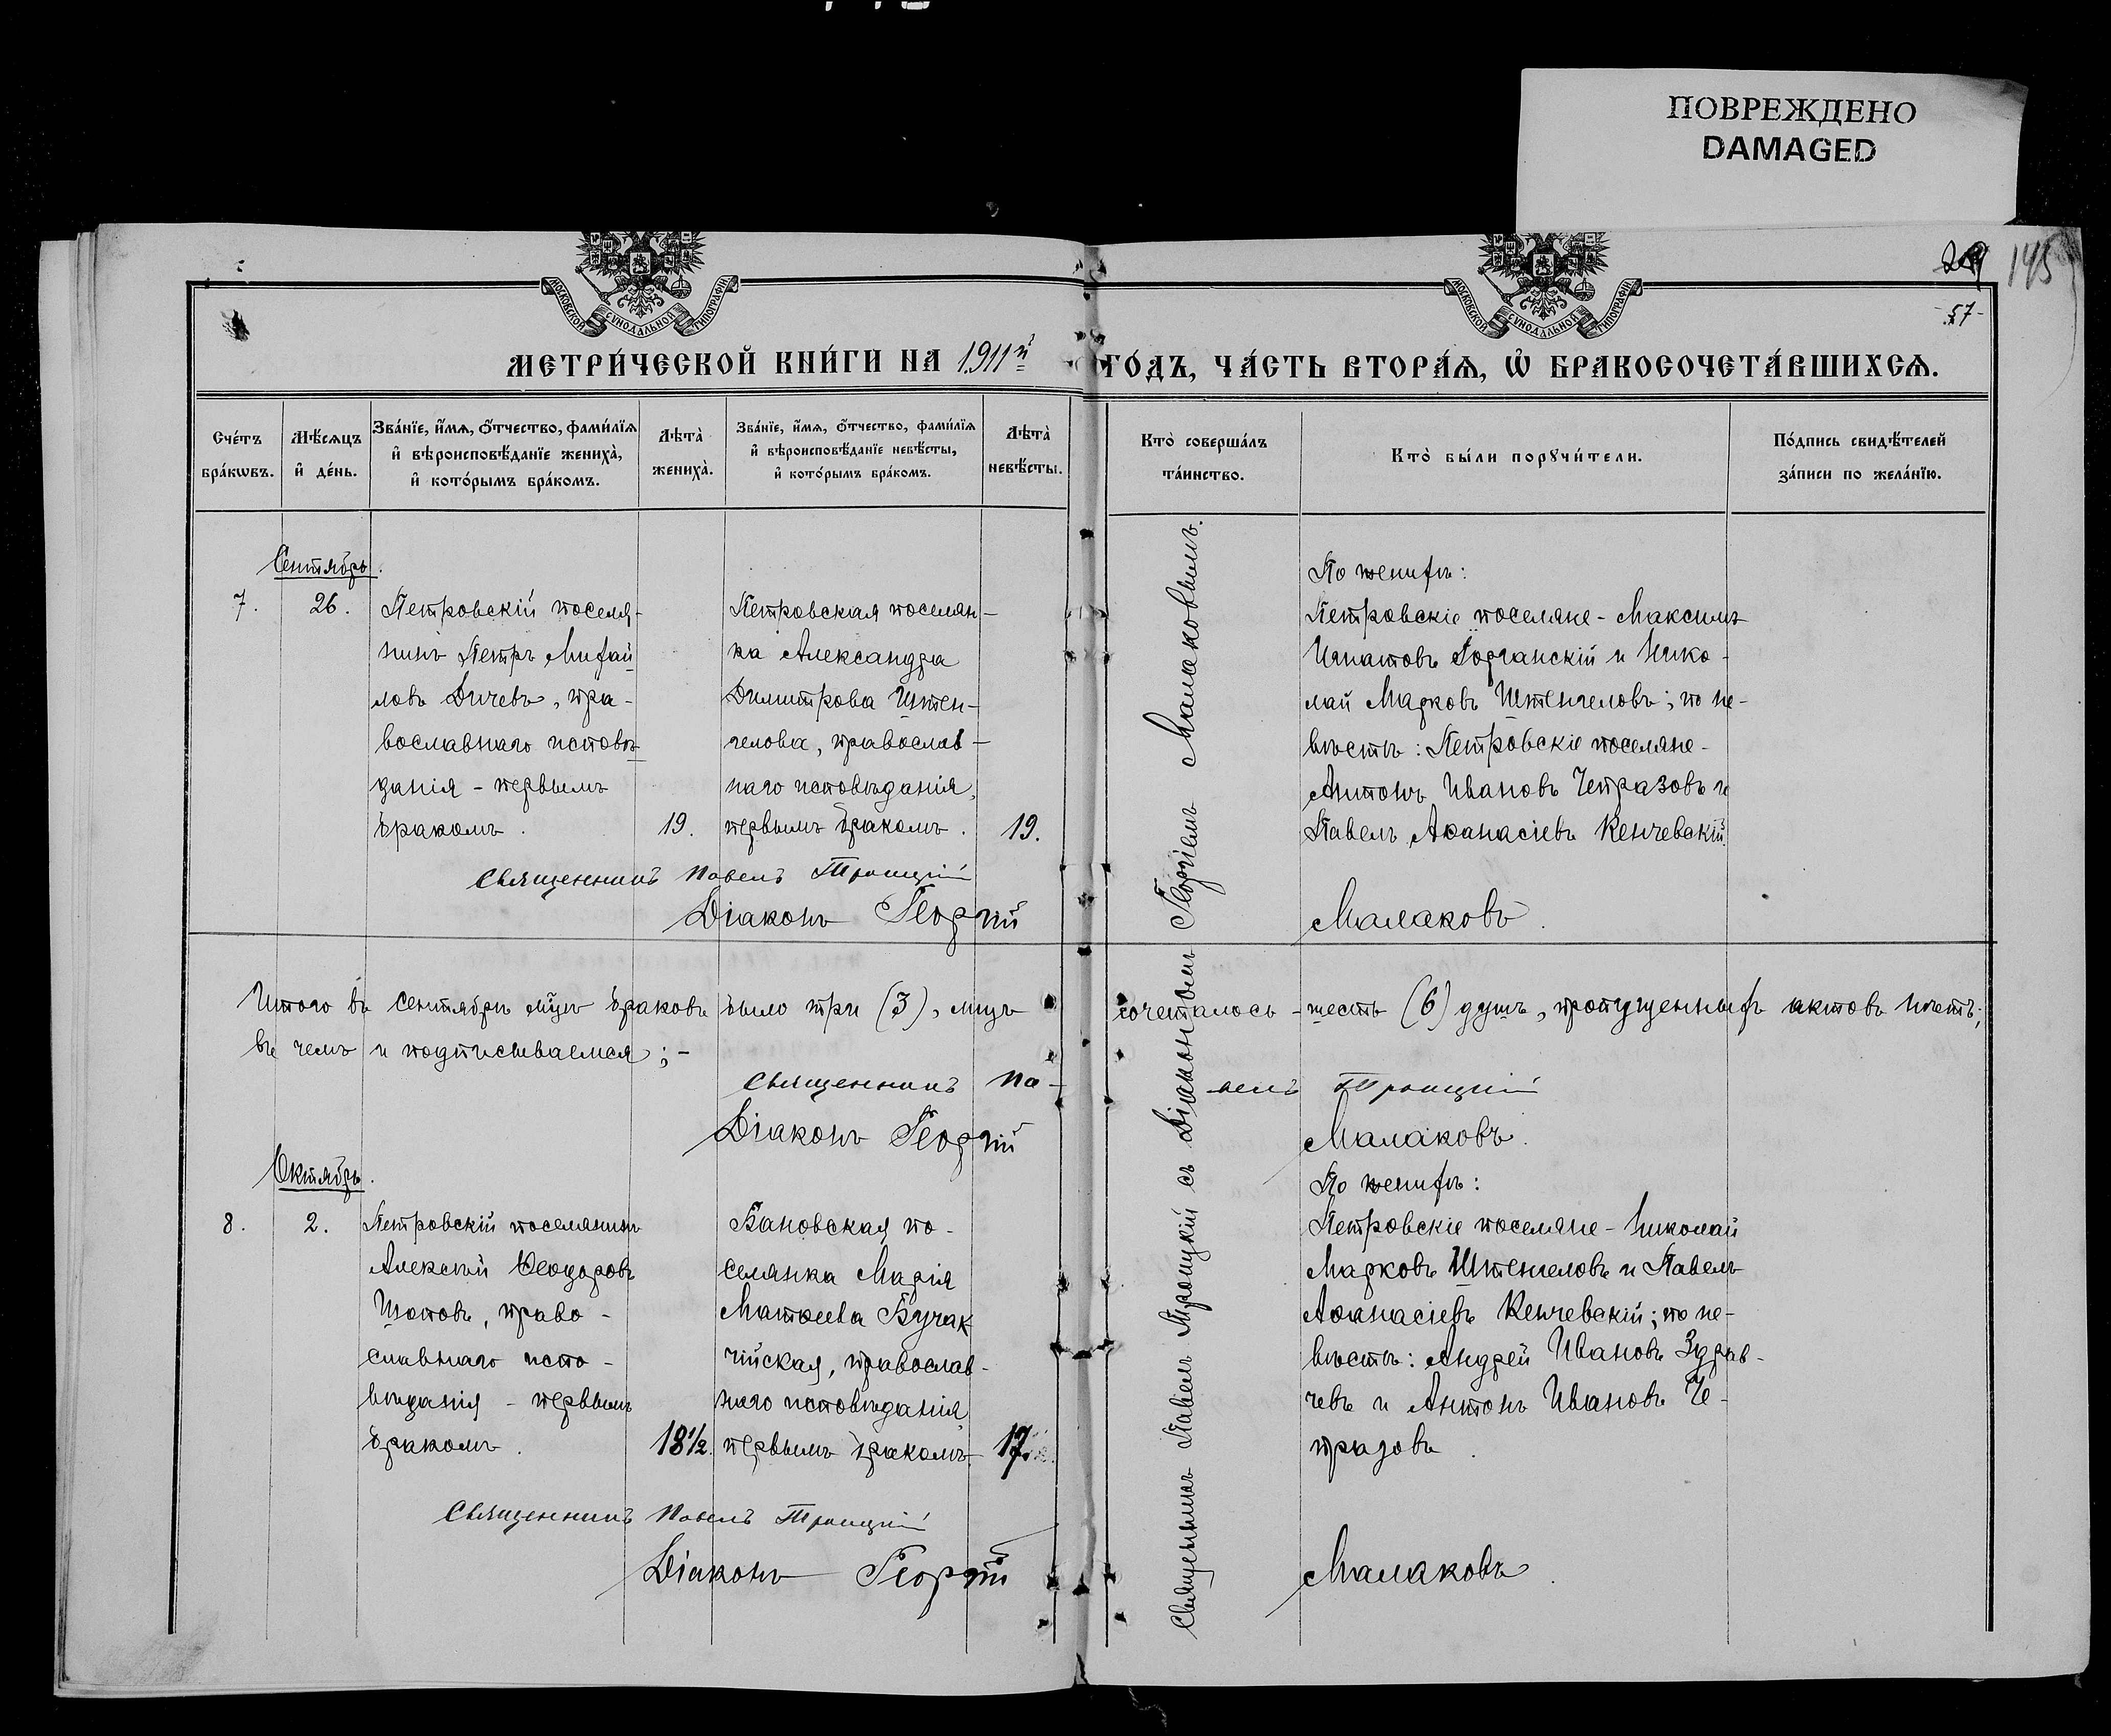 ПОВРЕЖДЕНО
DAMAGED
145
57
МОСКОВСКОЙ СѴНОДАЛЬНОЙ ТИПОГРАФІИ
МОСКОВСКОЙ СѴНОДАЛЬНОЙ ТИПОГРАФІИ
МЕТРИ́ЧЕСКОЙ КНИ́ГИ НА 1911й ГО́ДЪ, ЧА́СТЬ ВТОРА́Ѧ, Ѽ БРАКОСОЧЕТА́ВШИХСѦ.
Сче́тъ
бра́кѡвъ.
Мѣ́сѧцъ
и҆ де́нь.
Зва́нїе, и҆́мѧ, ѻ҆́тчество, фами́лїѧ
и҆ вѣроисповѣ́данїе жениха̀,
и҆ кото́рымъ бра́комъ.
Лѣ́та̀
жениха̀.
Зва́нїе, и҆́мѧ, ѻ҆́тчество, фами́лїѧ
и҆ вѣроисповѣ́данїе невѣ́сты,
и҆ кото́рымъ бра́комъ.
Лѣ́та̀
невѣ́сты.
Кто̀ соверша́лъ
та́инство.
Кто̀ бы́ли порꙋчи́тели.
По́дпись свидѣ́телей
за́писи по жела́нїю.
Сентябрь.
7.
26.
Петровскій поселя-
нинъ Петръ Михай
ловъ Дичевъ, пра-
вославнаго исповѣ-
данія - первымъ
бракомъ.
19.
Петровская поселян-
ка Александра
Димитрова Штен-
челова, православ-
наго исповѣданія,
первымъ бракомъ.
19.
Священникъ Павелъ Троицкій съ Діакономъ Георгіемъ Малаковымъ.
По женихѣ:
Петровскіе поселяне - Максимъ
Игнатовъ Горчанскій и Нико-
лай Марковъ Штенчеловъ; по не-
вѣстѣ: Петровскіе поселяне-
Антонъ Ивановъ Чепразовъ и
Павелъ Аѳанасіевъ Кенчевскій.
Священникъ Павелъ Троицкій
Діаконъ Георгій Малаковъ.
Итого въ Сентябрѣ мцѣ браковъ было три (3), лицъ сочеталось - шесть (6) душъ, пропущенныхъ актовъ нѣтъ;
въ чемъ и подписываемся; -
Священникъ Павелъ Троицкій
Діаконъ Георгій Малаковъ.
Октябрь.
8.
2.
Петровскій поселянинъ
Алексѣй Ѳеодоровъ
Шоповъ, право-
славнаго испо-
вѣданія - первымъ
бракомъ.
18½.
Бановская по-
селянка Марія
Матѳеева Бучак
чійская, православ-
наго исповѣданія,
первымъ бракомъ
17.
По женихѣ:
Петровскіе поселяне - Николай
Марковъ Штенчеловъ и Павелъ
Аѳанасіевъ Кенчевскій; по не-
вѣстѣ: Андрей Ивановъ Здрав-
чевъ и Антонъ Ивановъ Че-
празовъ.
Священникъ Павелъ Троицкій
Діаконъ Георгій Малаковъ.